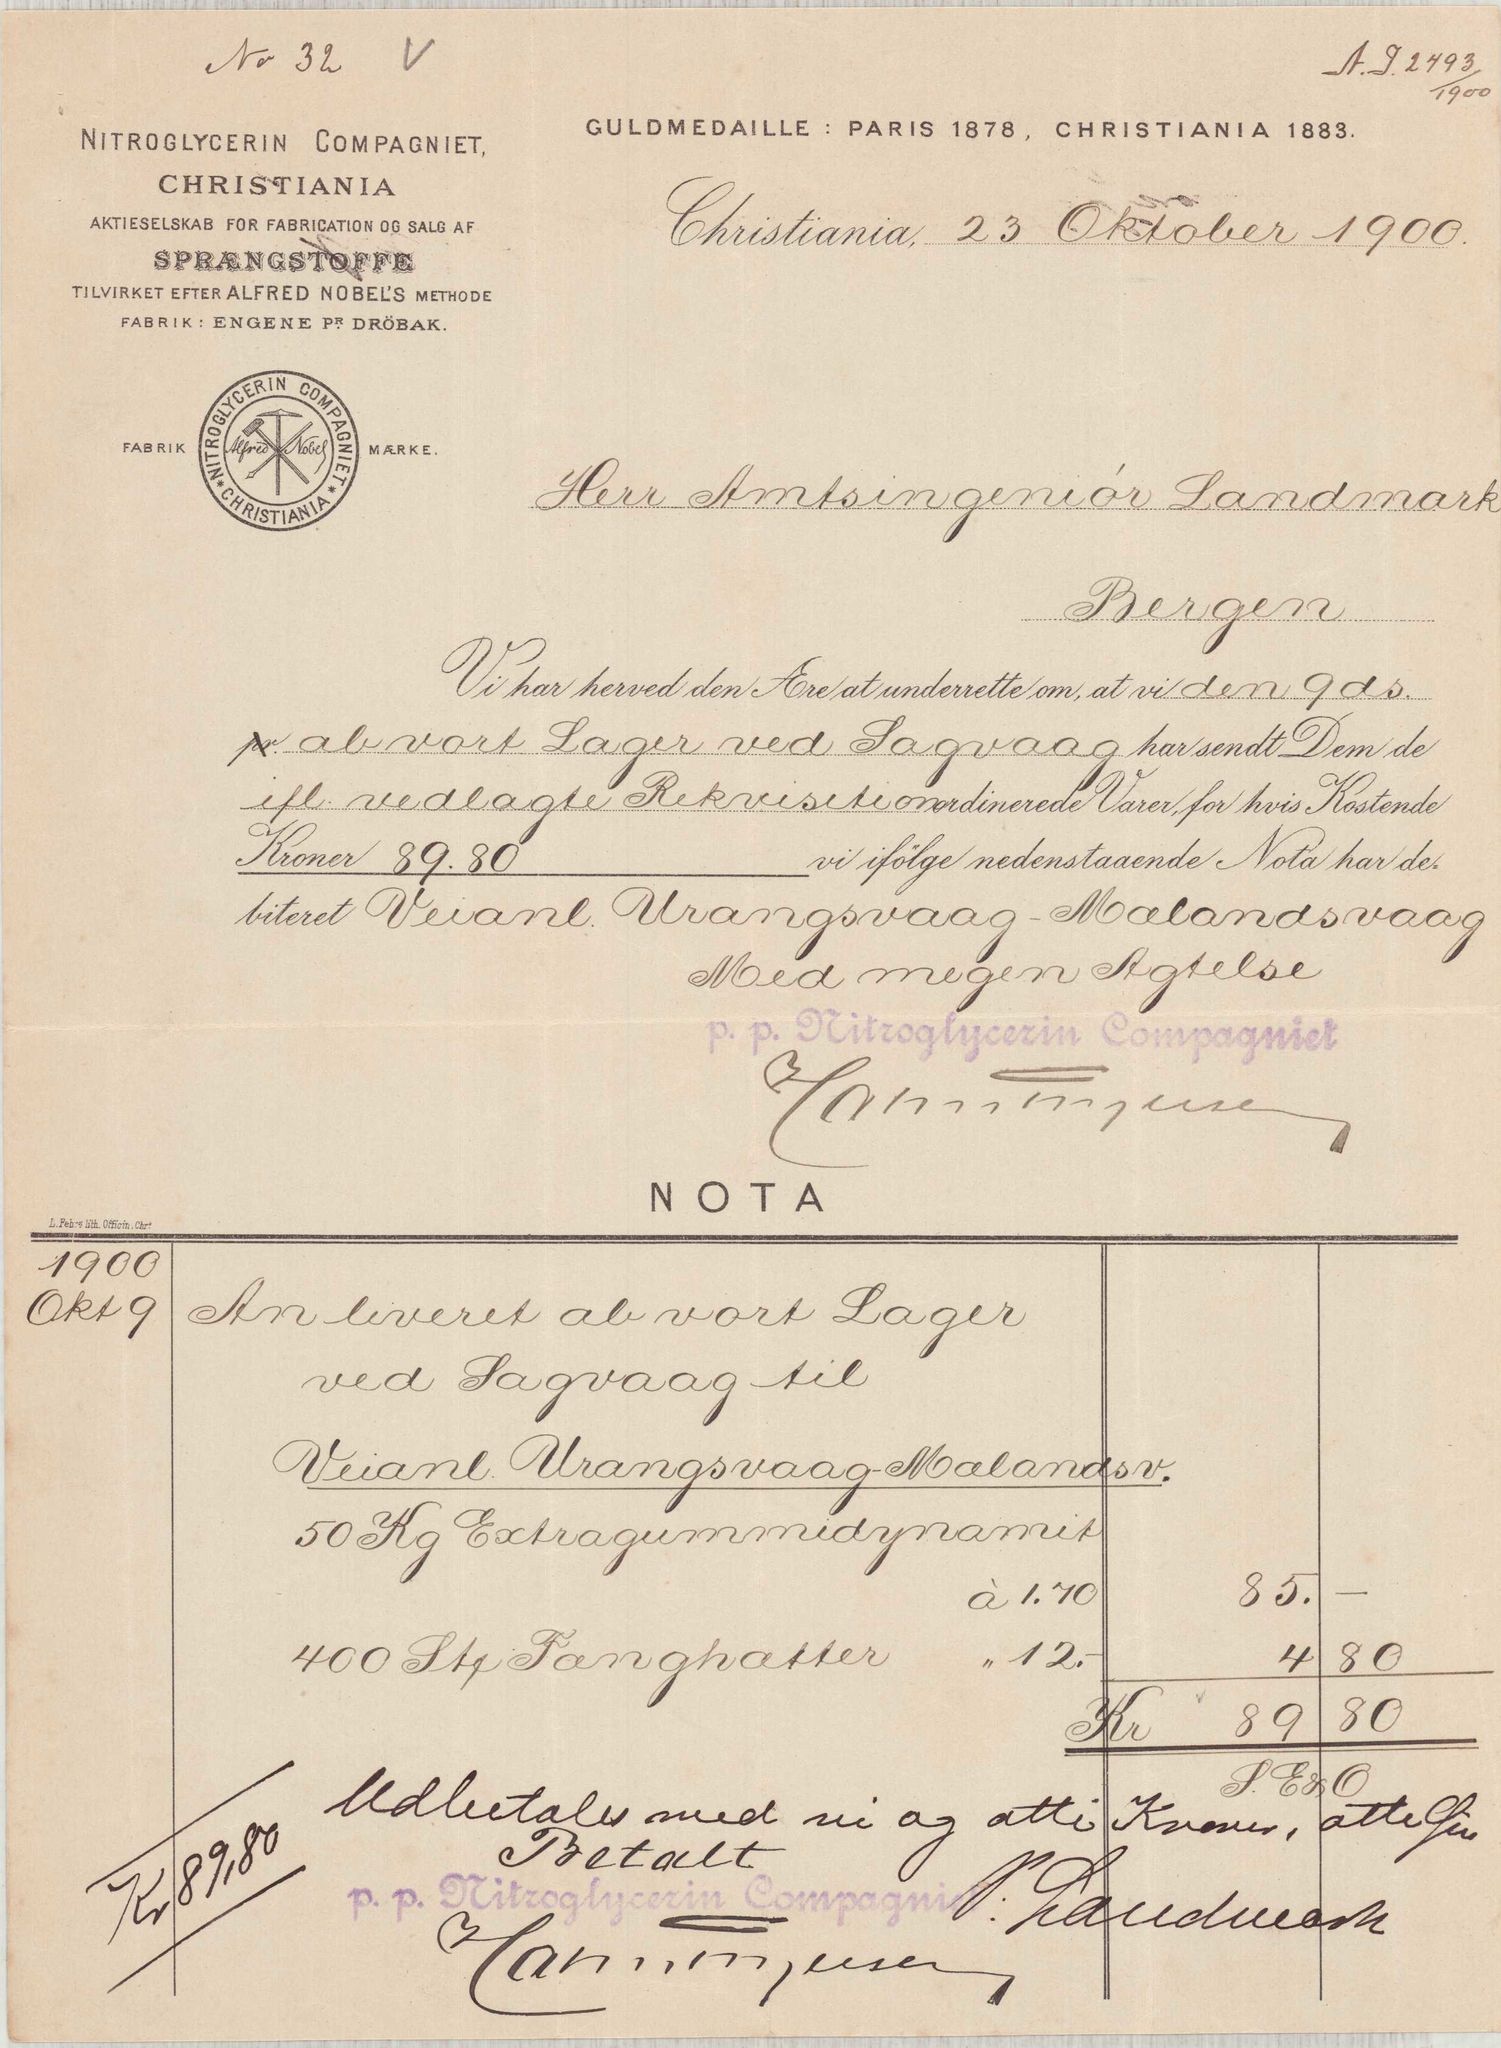 No 32 V
A. J. 2493/1900
NITROGLYCERIN COMPAGNIET,
CHRISTIANIA
AKTIESELSKAB FOR FABRICATION OG SALG AF
SPRÆNGSTOFFE
TILVIRKET EFTER ALFRED NOBEL'S METHODE
FABRIK: ENGENE PR DRÖBAK.
GULDMEDAILLE: PARIS 1878, CHRISTIANIA 1883.
Christiania, 23 Oktober 1900.
FABRIK MÆRKE.
NITROGLYCERIN COMPAGNIET * CHRISTIANIA *
Alfred Nobel
Herr Amtsingeniör Landmark
Bergen
Vi har herved den Ære at underrette om, at vi den 9 ds.
pr. ab vort Lager ved Sagvaag har sendt Dem de
ifl. vedlagte Rekvisition ordinerede Varer, for hvis Kostende
Kroner 89.80 vi ifölge nedenstaaende Nota har de-
biteret Veianl. Urangsvaag-Mælandsvaag
Med megen Agtelse
p. p. Nitroglycerin Compagniet
NOTA
L. Fehrs lith. Officin. Chra
1900
Okt 9 An leveret ab vort Lager
ved Sagvaag til
Veianl. Urangsvaag-Mælandsv.
50 Kg Extragummidynamit
à 1.70 85. —
400 Stk Fænghætter " 12.- 4 80
Kr 89 80
S. E & O
Udbetales med ni og otti Kroner, otti Øre
Kr 89,80
Betalt
p. p. Nitroglycerin Compagni
P. Landmark